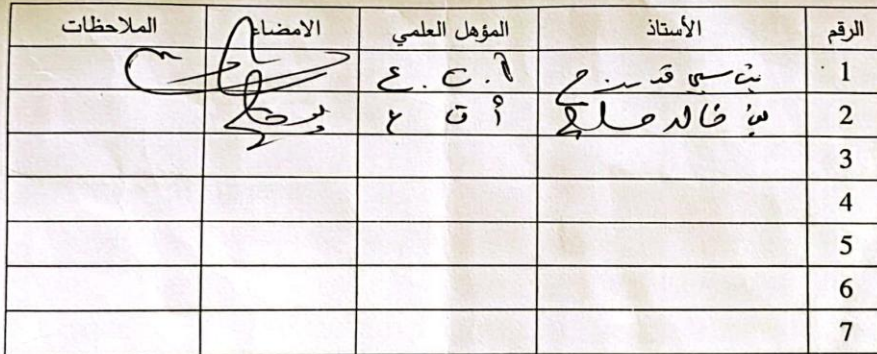 الرقم الأستاذ المؤهل العلمي الامضاء الملاحظات
1 أ. ت. ع
2 بن خالد أ ت ع
3
4
5
6
7